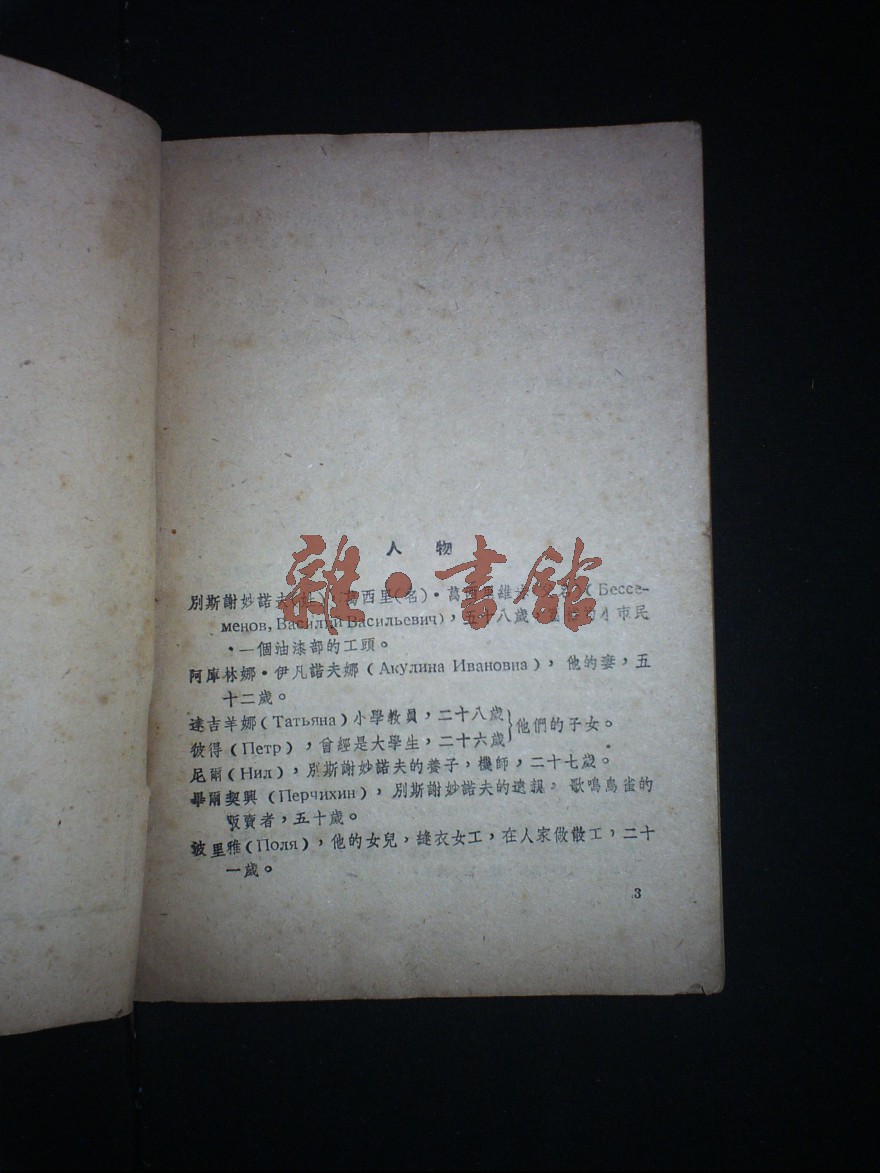 人 物
雜·書舘
別斯謝妙諾夫(姓),葛西里(名)·葛西里維 (Бессе-
менов, Василий Васильевич),五十八歲 小市民
,一個油漆部的工頭。
阿庫林娜·伊凡諾夫娜(Акулина Ивановна),他的妻,五
十二歲。
達吉羊娜(Татьяна)小學教員,二十八歲 }他們的子女。
彼得(Петр),曾經是大學生,二十六歲
尼爾(Нил),別斯謝妙諾夫的養子,機師,二十七歲。
畢爾契興(Перчихин),別斯謝妙諾夫的遠親,歌鳴鳥雀的
販賣者,五十歲。
波里雅(Поля),他的女兒,縫衣女工,在人家做散工,二十
一歲。
3